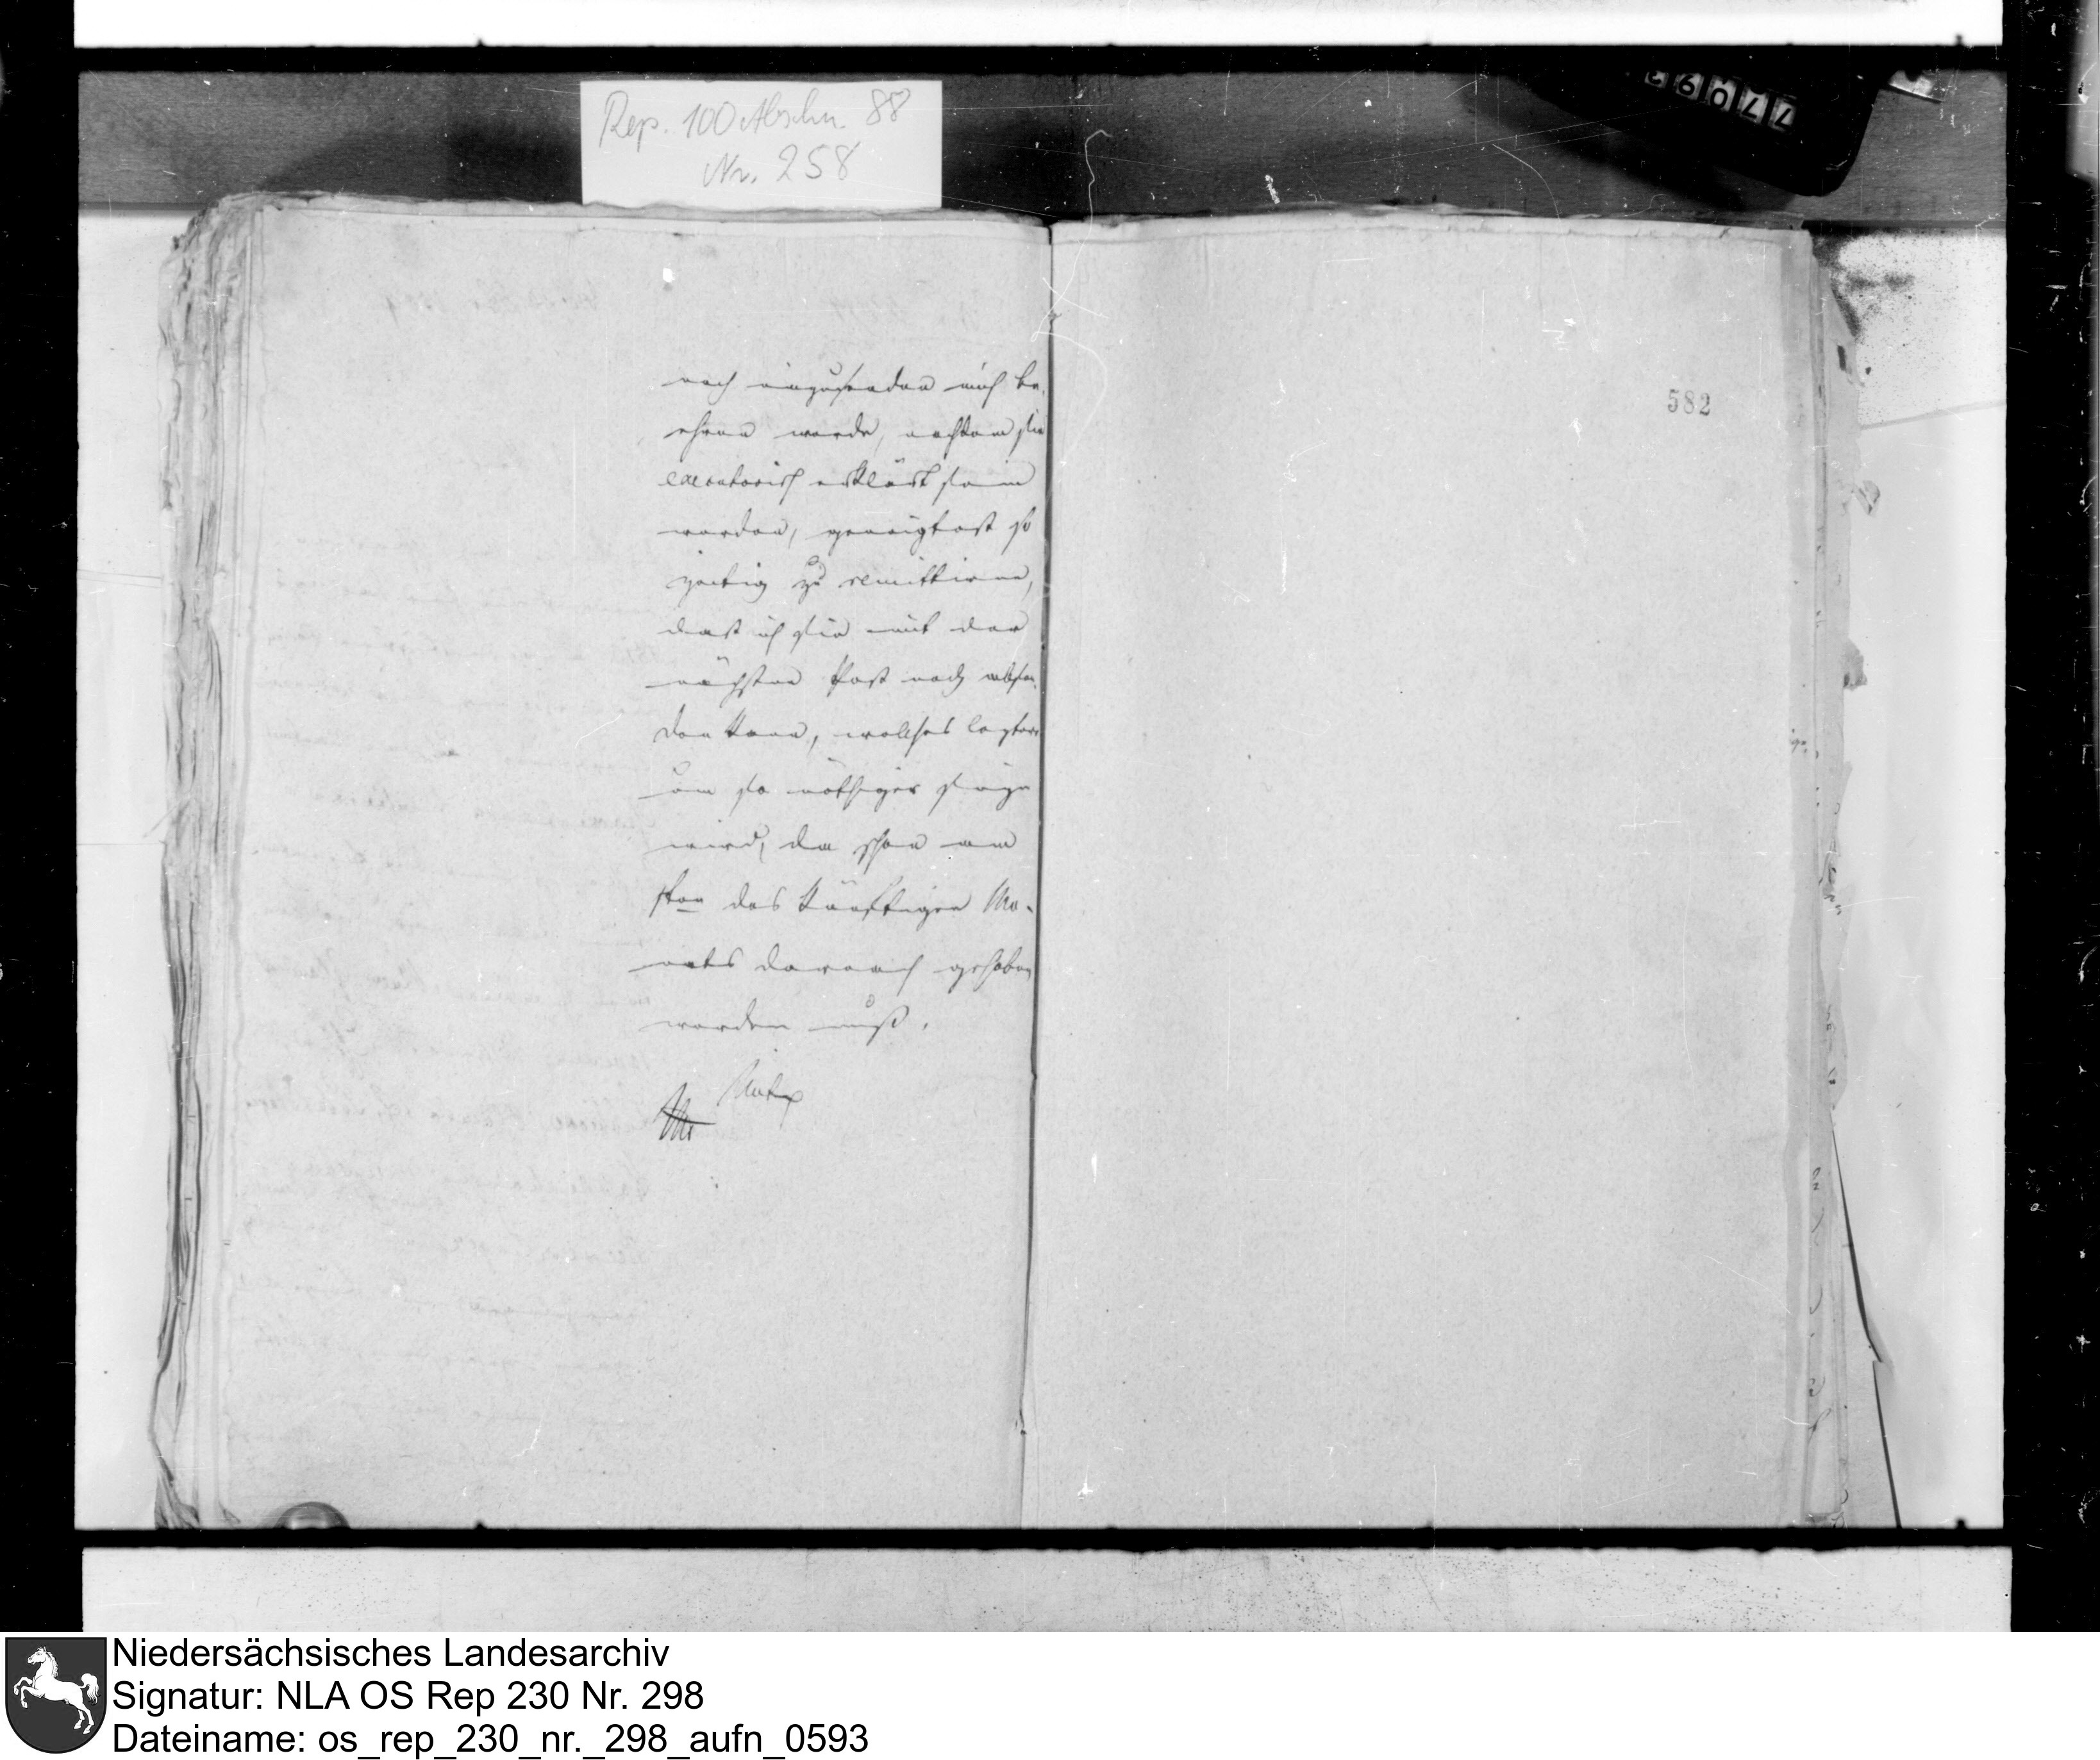 Rep. 100 Abschn. 88
Nr. 258
77093
582
noch einzusenden mich be-
ehren werde, nachdem sie
executorisch erklärt sein
werden, geneigtest so
zeitig zu remittiren,
daß ich sie mit der
nächsten Post noch absen-
den kann, welches letztere
um so nöthiger seyn
wird, da schon am
sten des künftigen Mo-
nats darnach gehoben
werden muß.
Niedersächsisches Landesarchiv
Signatur: NLA OS Rep 230 Nr. 298
Dateiname: os_rep_230_nr._298_aufn_0593